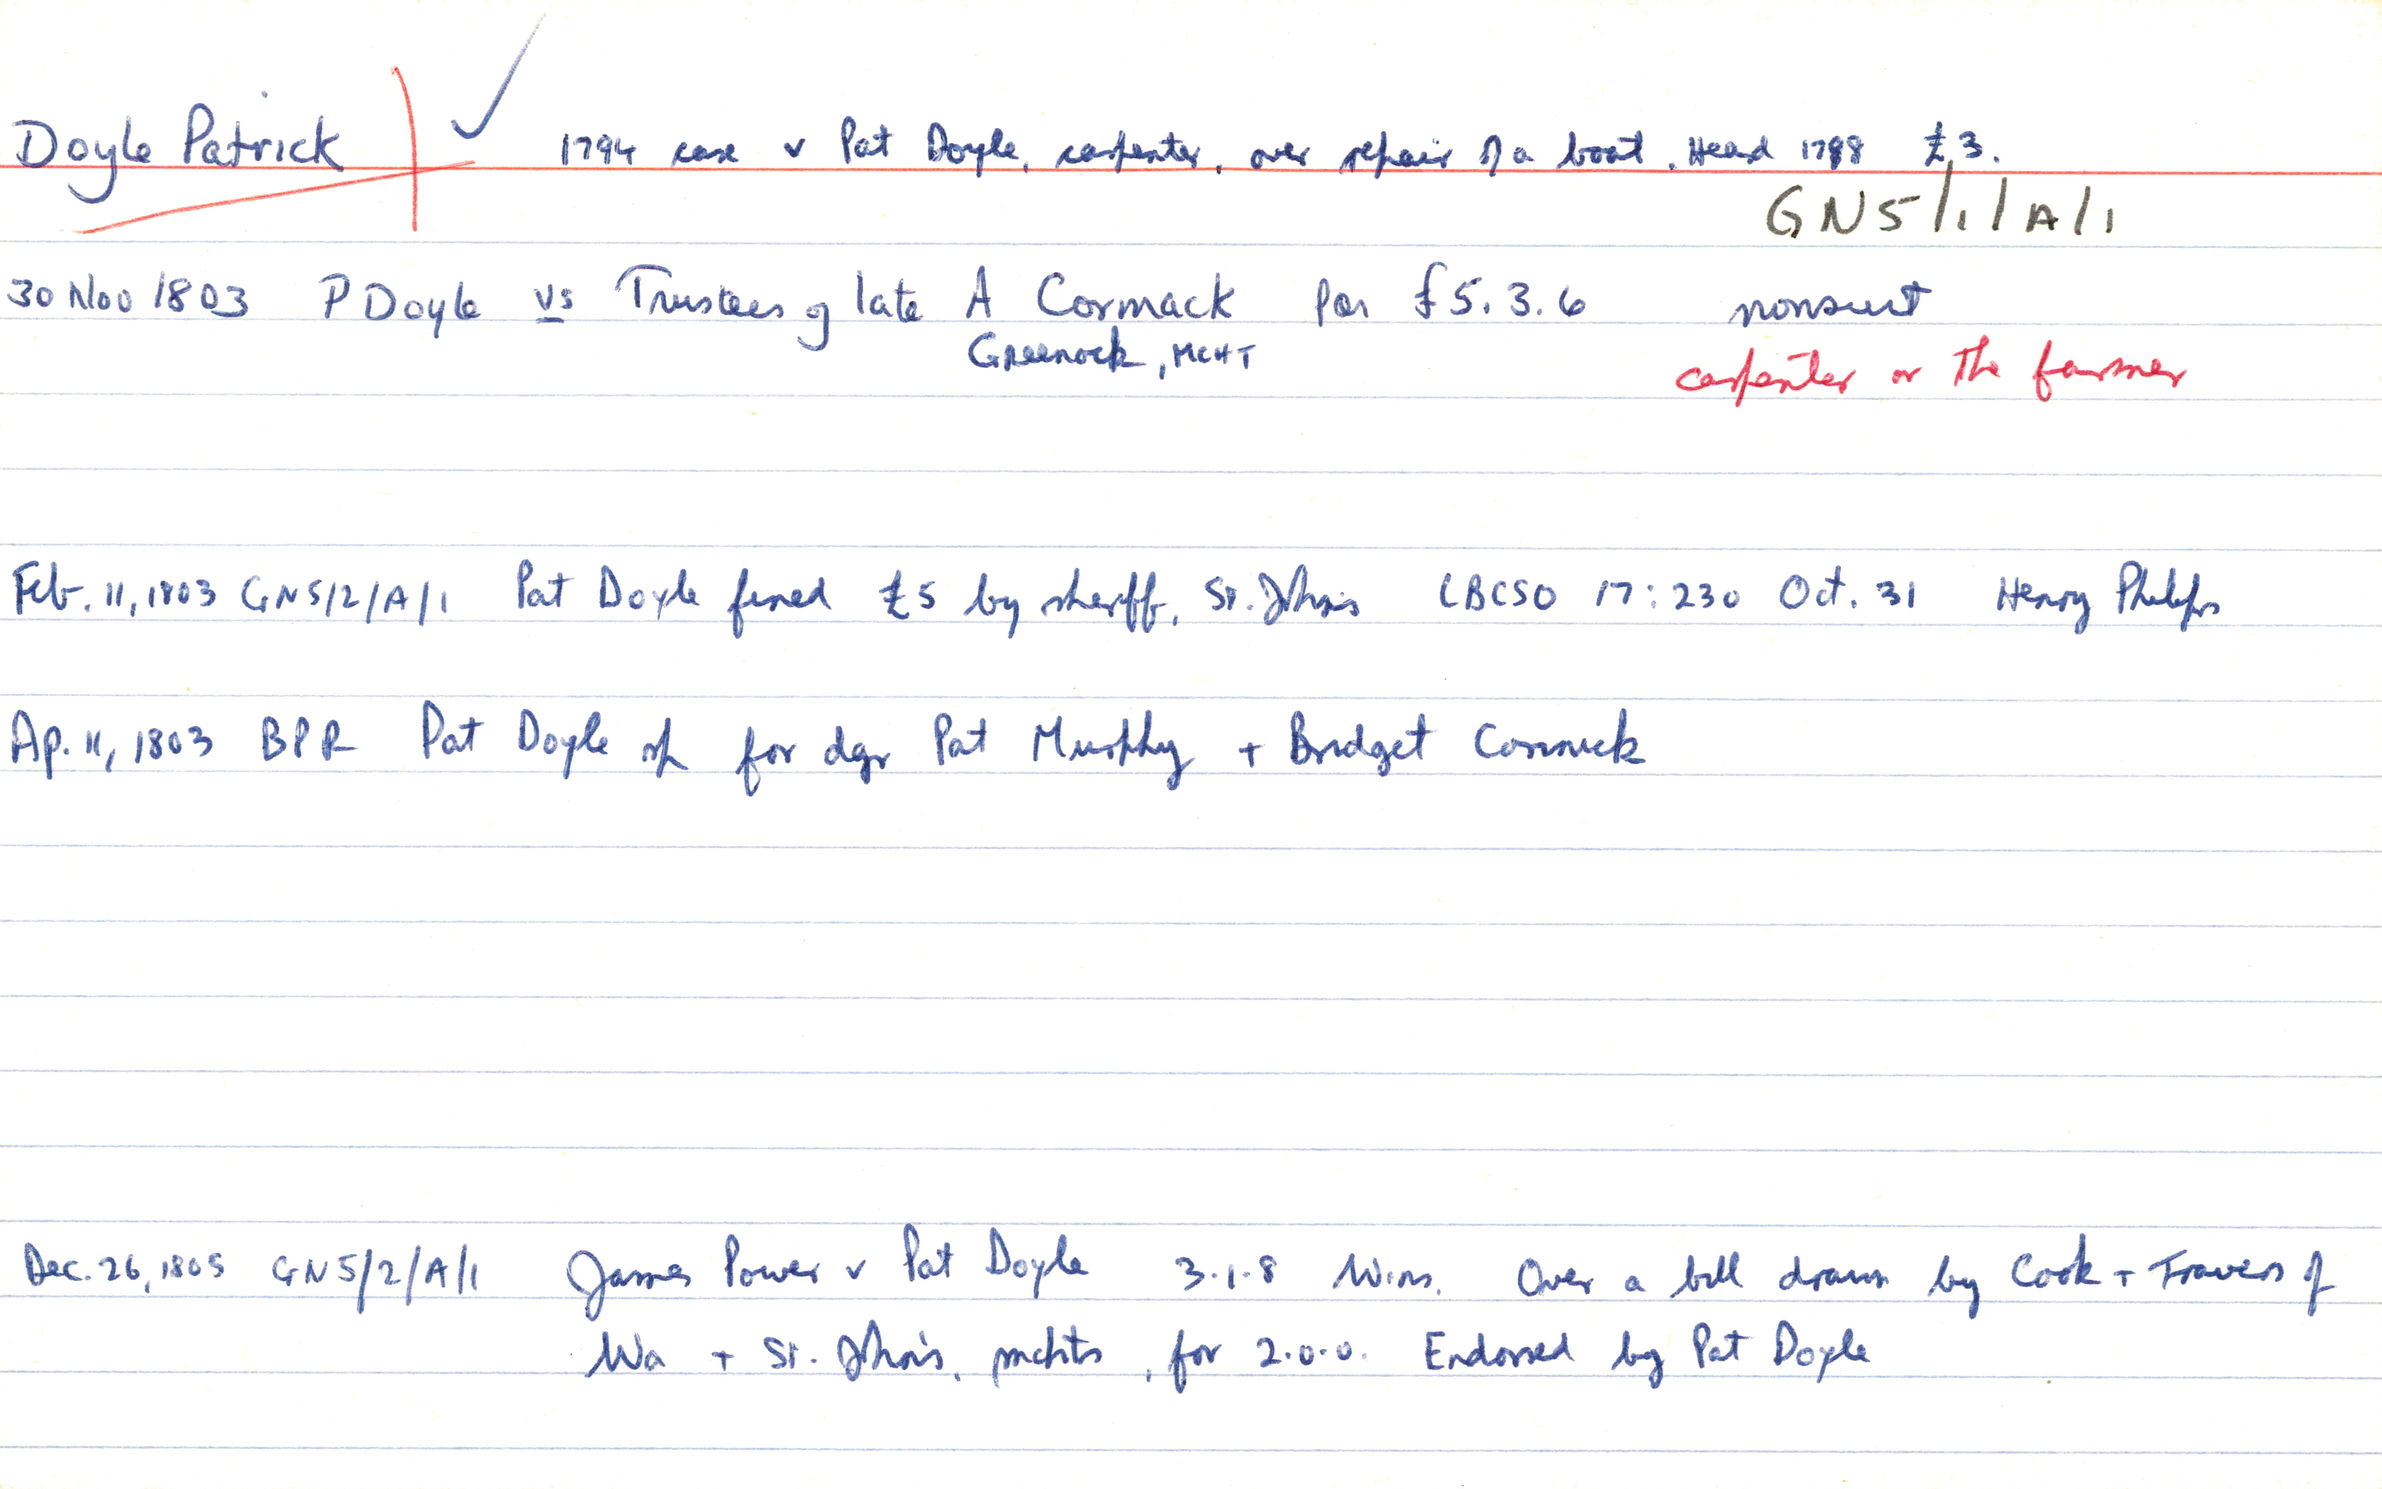 Doyle Patrick ✓ 1794 case v Pat Doyle, carpenter, over repair of a boat. Heard 1798 £3.
GN5/1/A/1
30 Nov 1803 P Doyle vs Trustees of late A Cormack for £5.3.6 nonsuit
Greenock, MCHT
carpenter or the farmer
Feb. 11, 1803 GN5/2/A/1 Pat Doyle fined £5 by sheriff, St. John's CBCSO 17:230 Oct. 31 Henry Philips
Ap. 11, 1803 BPR Pat Doyle sp for dgr Pat Murphy + Bridget Cormick
Dec. 26, 1805 GN5/2/A/1 James Power v Pat Doyle 3.1.8 Wins. Over a bill drawn by Cook + Travers of
Wa + St. John's, mchts, for 2.0.0. Endorsed by Pat Doyle